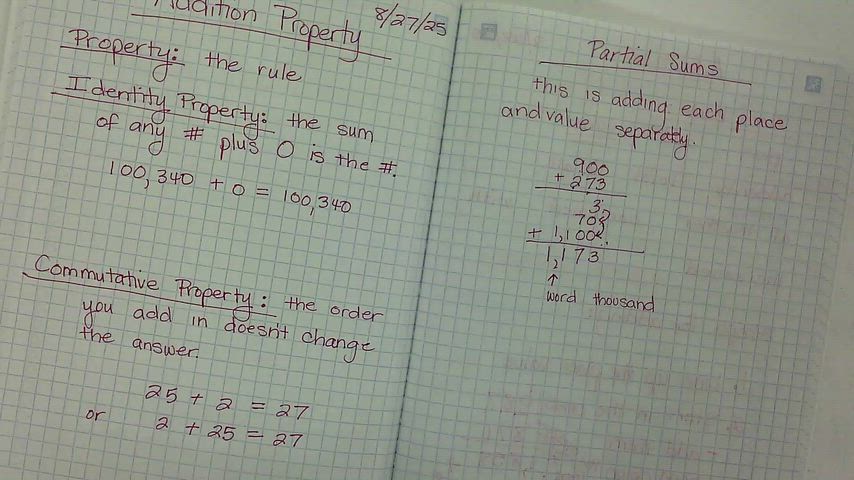 Addition Property
8/27/25
Property: the rule
Identity Property: the sum
of any # plus 0 is the #.
100,340 + 0 = 100,340
Commutative Property: the order
you add in doesn't change
the answer.
25 + 2 = 27
or 2 + 25 = 27
Partial Sums
this is adding each place
and value separately.
900
+ 273
3
70
+ 1,100
1,173
↑
word thousand